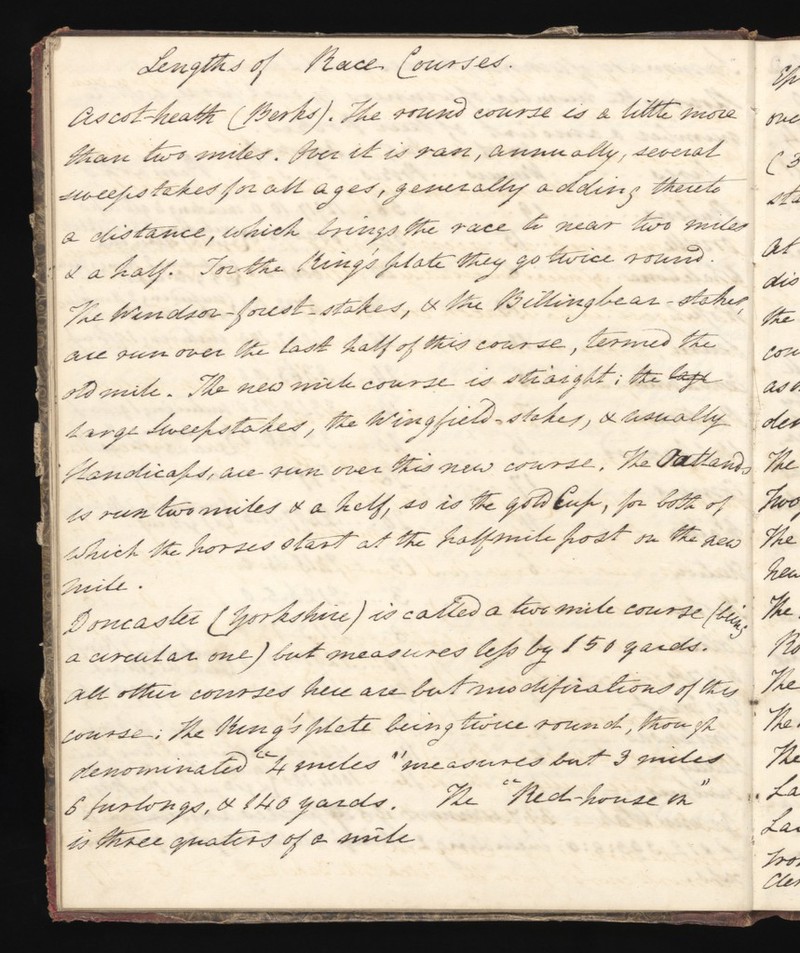 Lengths of Race Courses.
Ascot-heath (Berks). The round course is a little more
than two miles. Over it is ran, annually, several
sweepstakes for all ages, generally adding thereto
a distance, which brings the race to near two miles
& a half. For the King's plate they go twice round.
The Windsor-forest-stakes, & the Billingbear-stakes,
are run over the last half of this course, termed the
old mile. The new mile course is straight; the
Large Sweepstakes, the Wingfield-stakes, & usually
Handicaps, are run over this new course. The Oatlands
is run two miles & a half, so is the gold Cup, for both of
which the horses start at the half mile post on the new
mile.
Doncaster (Yorkshire) is called a two mile course (being
a circular one) but measures less by 150 yards.
All other courses here are but modifications of this
course: The King's plate being twice round, though
denominated "4 miles" measures but 3 miles
6 furlongs, & 140 yards. The "Red-house in"
is three quaters of a mile
over
(3
At
dis
the
The
Two
The
new
The
Ro
The
The
The
La
La